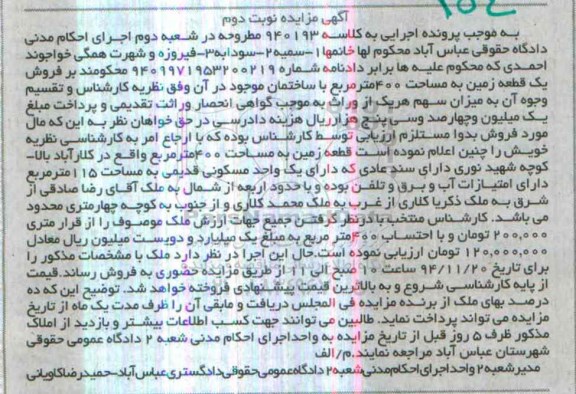 آگهی مزایده نوبت دوم
به موجب پرونده اجرایی به کلاسه ۹۴۰۱۹۳ مطروحه در شعبه دوم اجرای احکام مدنی
دادگاه حقوقی عباس آباد محکوم لها خانمها۱-سمیه۲-سودابه۳-فیروزه و شهرت همگی خواجوند
احمدی که محکوم علیه ها برابر دادنامه شماره ۹۴۰۹۹۷۱۹۵۳۲۰۰۲۱۹ محکومند بر فروش
یک قطعه زمین به مساحت ۴۰۰مترمربع با ساختمان موجود در آن وفق نظریه کارشناس و تقسیم
وجوه آن به میزان سهم هریک از وراث به موجب گواهی انحصار وراثت تقدیمی و پرداخت مبلغ
یک میلیون وچهارصد وسی پنج هزارریال هزینه دادرسی در حق خواهان نظر به این که مال
مورد فروش بدوا مستلزم ارزیابی توسط کارشناس بوده که با ارجاع امر به کارشناسی نظریه
خویش را چنین اعلام نموده است قطعه زمین به مساحت ۴۰۰مترمربع واقع در کلارآباد بالا-
کوچه شهید نوری دارای سند عادی که دارای یک واحد مسکونی قدیمی به مساحت ۱۱۵مترمربع
دارای امتیازات آب و برق و تلفن بوده و با حدود اربعه از شمال به ملک آقای رضا صادقی از
شرق به ملک ذکریا کلاری از غرب به ملک محمد کلاری و از جنوب به کوچه چهارمتری محدود
می باشد. کارشناس منتخب با درنظر گرفتن جمیع جهات ارزش ملک موصوف را از قرار متری
۲۰۰,۰۰۰ تومان و با احتساب ۴۰۰متر مربع به مبلغ یک میلیارد و دویست میلیون ریال معادل
۱۲۰,۰۰۰,۰۰۰ تومان ارزیابی نموده است.حال این اجرا در نظر دارد ملک با مشخصات مذکور را
برای تاریخ ۹۴/۱۱/۲۰ ساعت ۱۰ صبح الی ۱۱ از طریق مزایده حضوری به فروش رساند.قیمت
از پایه کارشناسی شروع و به بالاترین قیمت پیشنهادی فروخته خواهد شد. توضیح این که ده
درصد بهای ملک از برنده مزایده فی المجلس دریافت و مابقی آن را ظرف مدت یک ماه از تاریخ
مزایده می تواند پرداخت نماید. طالبین می توانند جهت کسب اطلاعات بیشتر و بازدید از املاک
مذکور ظرف ۵ روز قبل از تاریخ مزایده به واحداجرای احکام مدنی شعبه ۲ دادگاه عمومی حقوقی
شهرستان عباس آباد مراجعه نمایند.م/الف
مدیرشعبه۲واحداجرای احکام مدنی شعبه۲دادگاه عمومی حقوقی دادگستری عباس آباد-حمیدرضاکاویانی